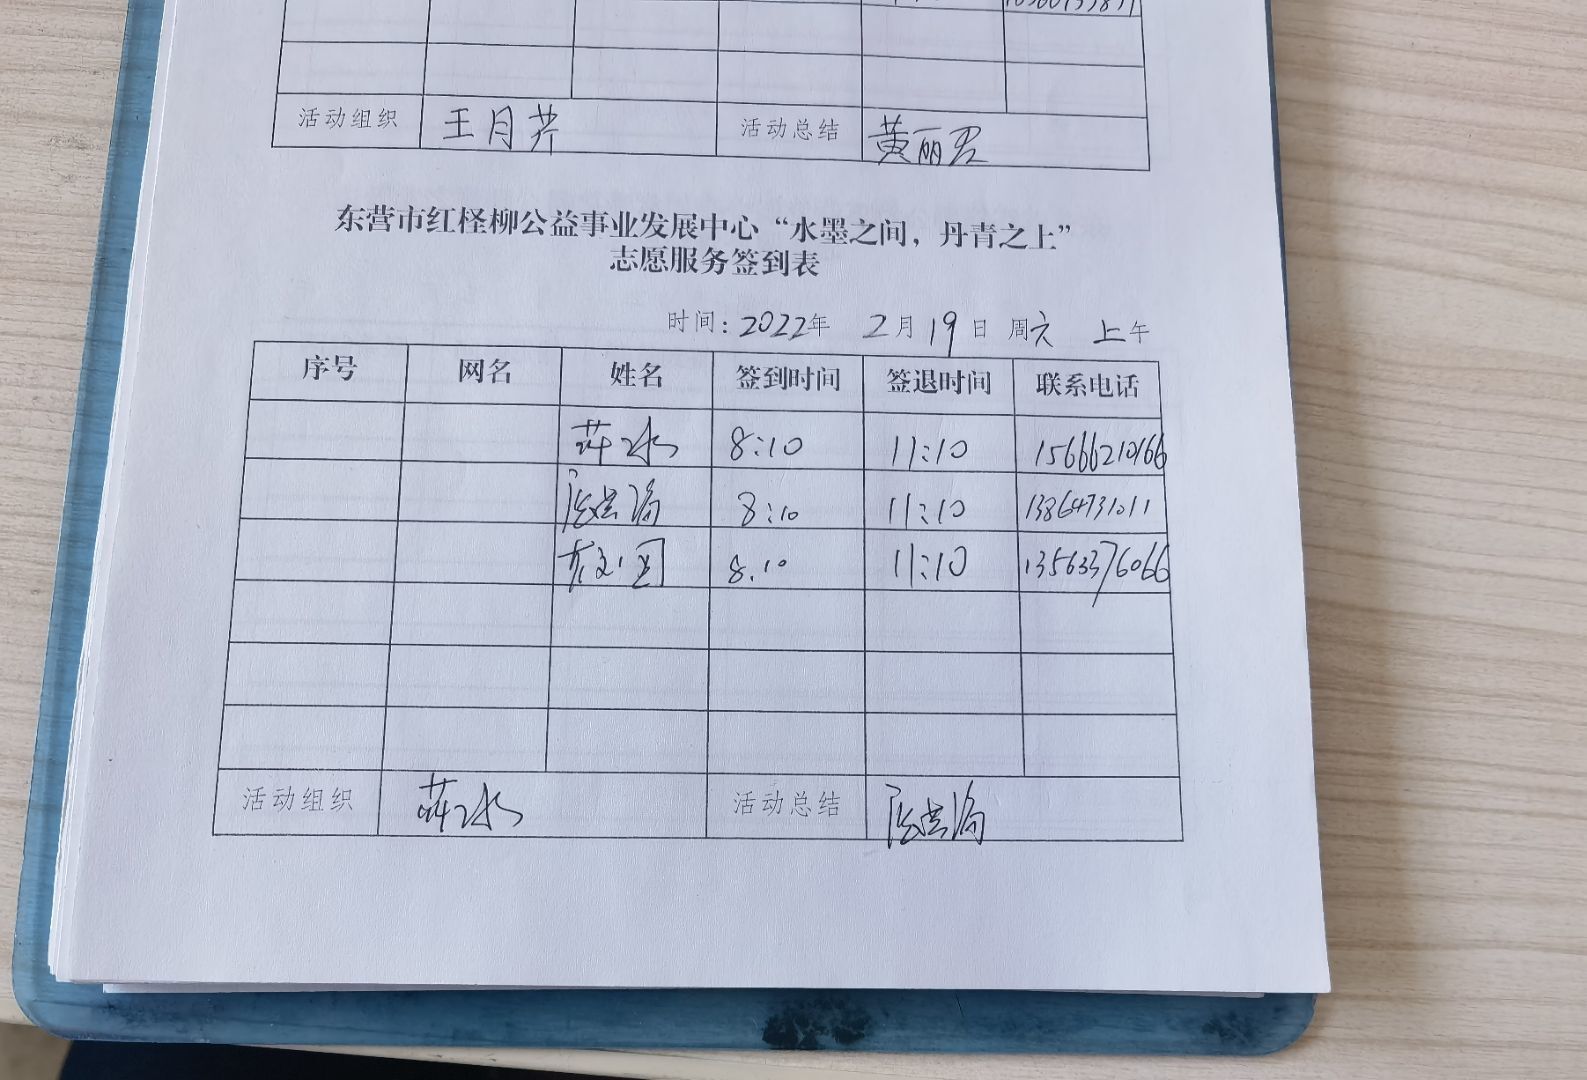 活动组织 王月芹 活动总结 黄丽君
东营市红柽柳公益事业发展中心“水墨之间，丹青之上”
志愿服务签到表
时间：2022年 2月19日 周六 上午
序号 网名 姓名 签到时间 签退时间 联系电话
8:10 11:10 15666210166
8:10 11:10 13864731011
8:10 11:10 13563376066
活动组织 活动总结